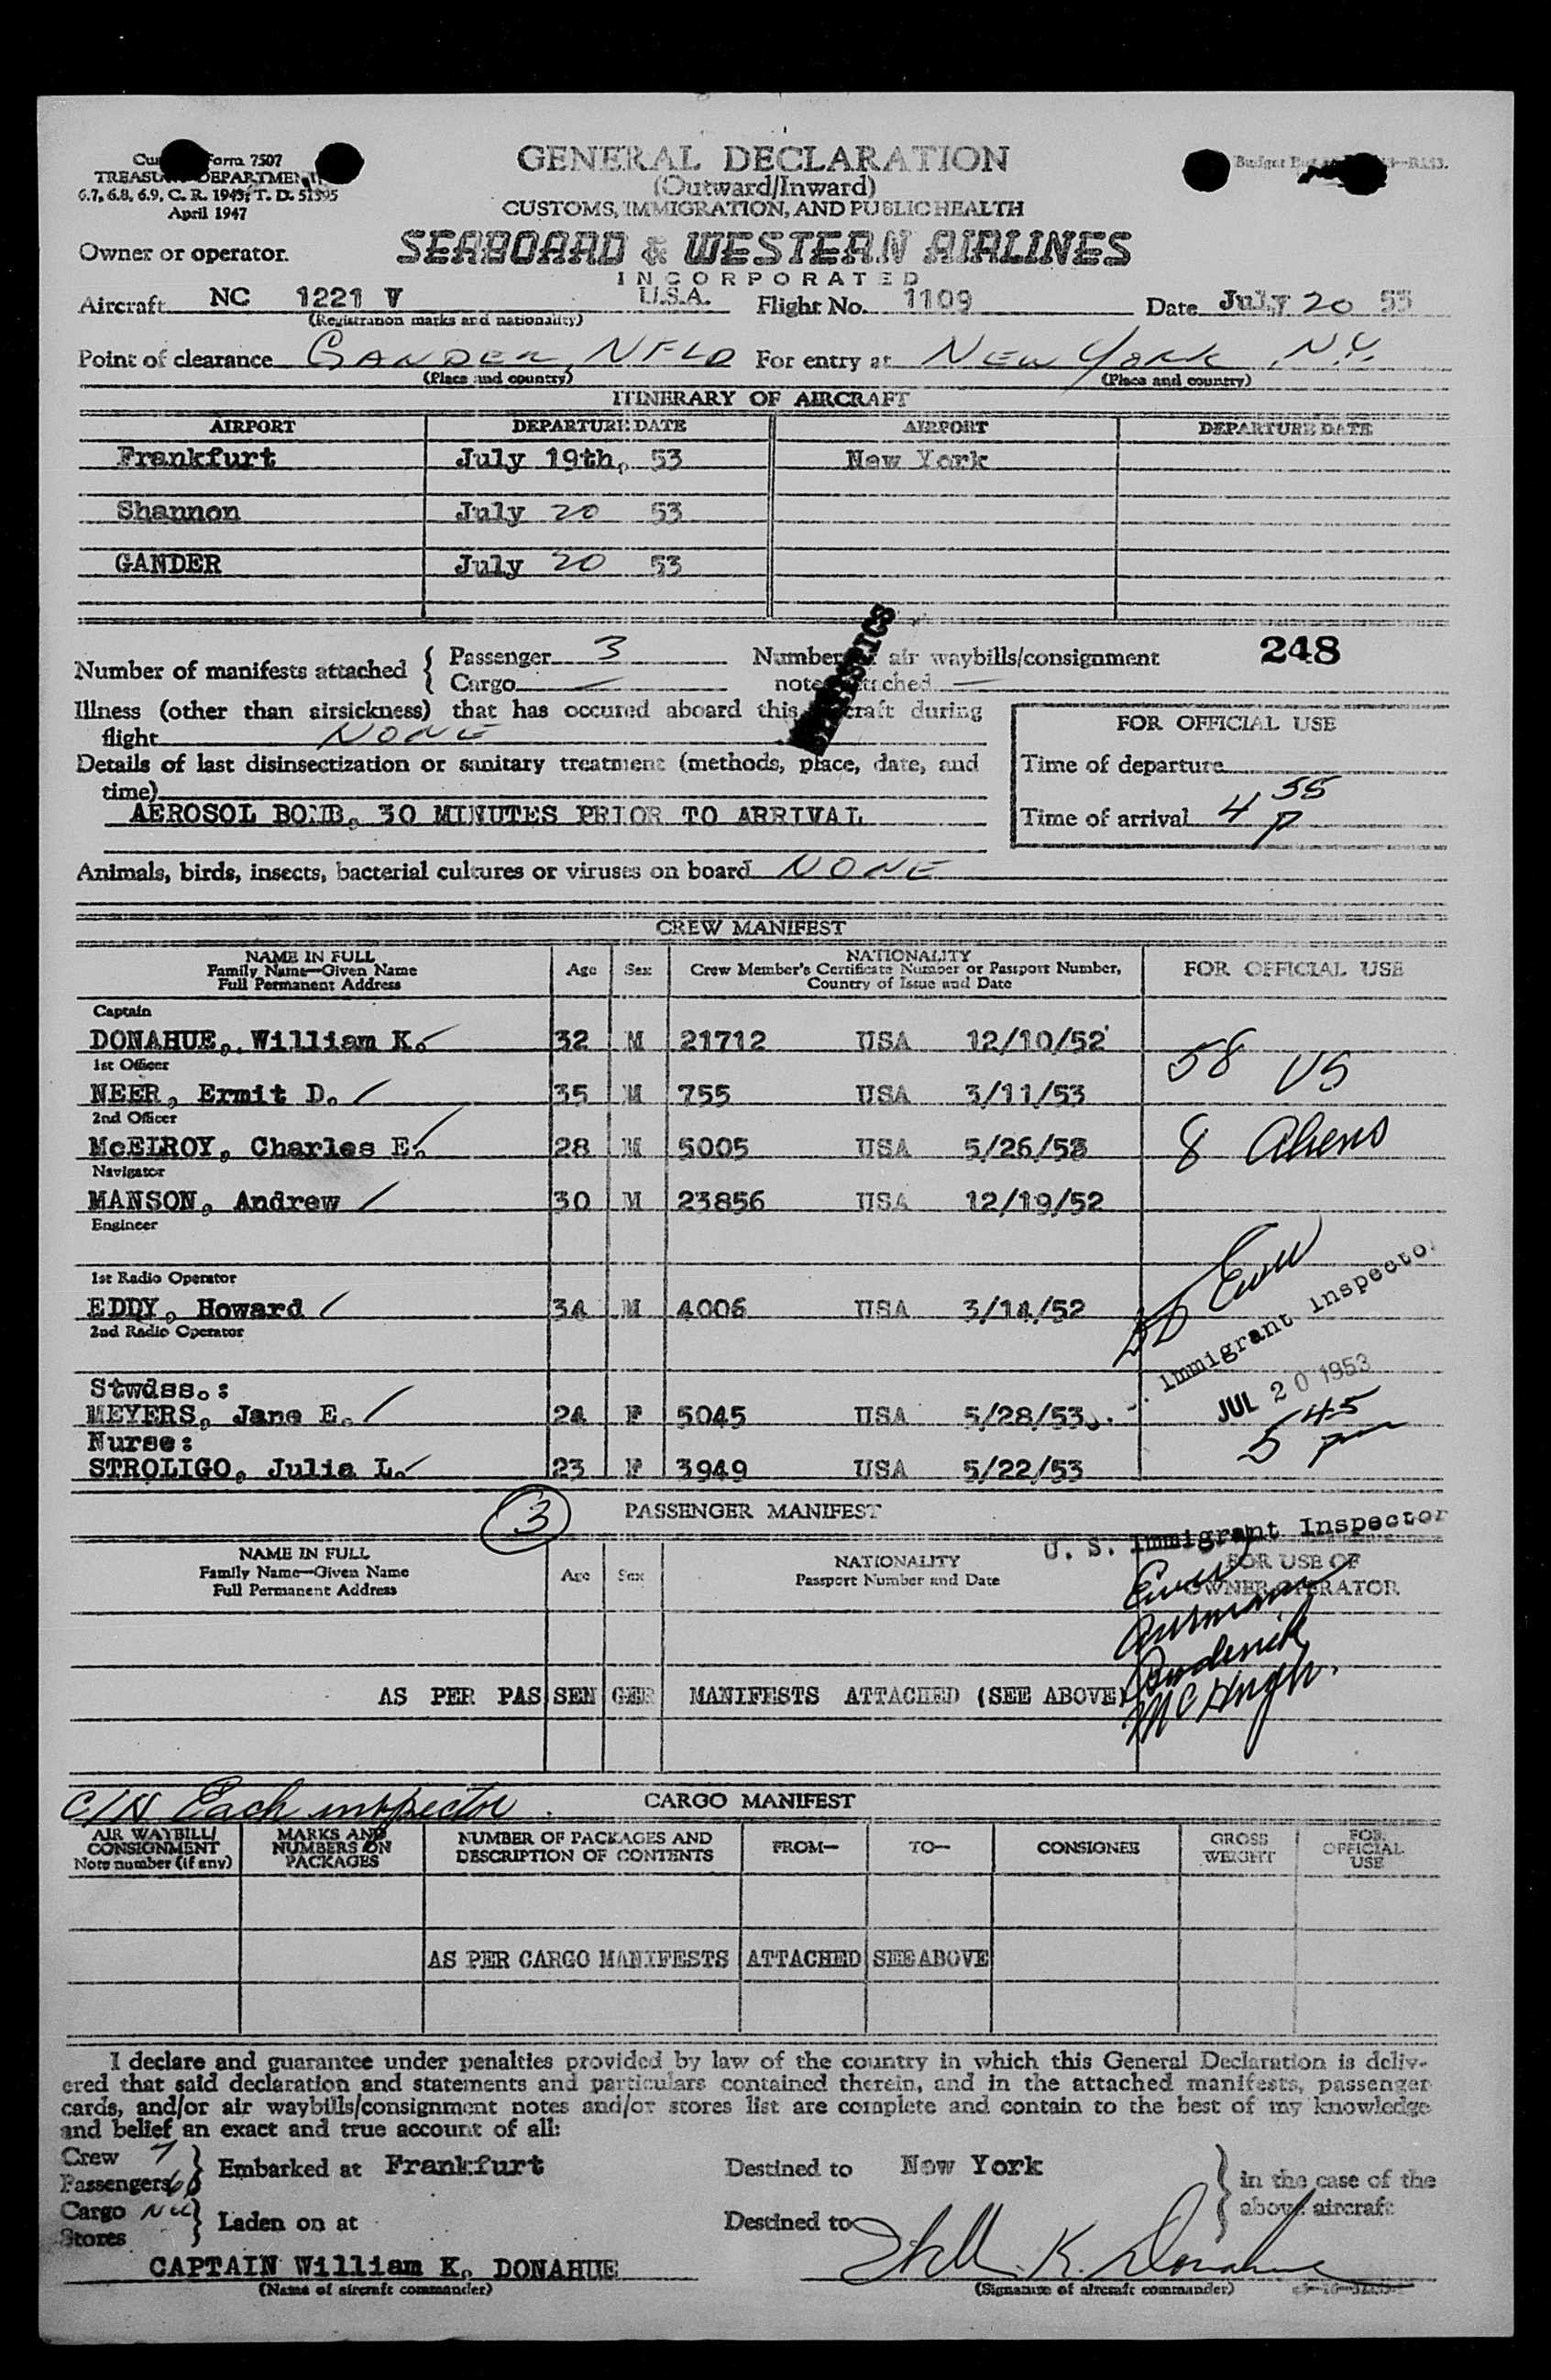 GENERAL DECLARATION
(Outward/Inward)
CUSTOMS, IMMIGRATION, AND PUBLIC HEALTH
Form 7507
TREASURY DEPARTMENT
6.7, 6.8, 6.9, C. R. 1943; T. D. 51595
April 1947
Owner or operator. SEABOARD & WESTERN AIRLINES
INCORPORATED
Aircraft NC 1221 V U.S.A. Flight No. 1109 Date July 20 53
(Registration marks and nationality)
Point of clearance GANDER, NFLD For entry at NEW YORK, N.Y.
(Place and country) (Place and country)
ITINERARY OF AIRCRAFT
AIRPORT DEPARTURE DATE AIRPORT DEPARTURE DATE
Frankfurt July 19th, 53 New York
Shannon July 20 53
GANDER July 20 53
248
Number of manifests attached { Passenger 3 Number of air waybills/consignment
Cargo — notes attached —
STATISTICS
Illness (other than airsickness) that has occured aboard this aircraft during
flight NONE
Details of last disinsectization or sanitary treatment (methods, place, date, and
time)
AEROSOL BOMB, 30 MINUTES PRIOR TO ARRIVAL
FOR OFFICIAL USE
Time of departure
Time of arrival 4 55 P
Animals, birds, insects, bacterial cultures or viruses on board NONE
CREW MANIFEST
NAME IN FULL
Family Name—Given Name
Full Permanent Address
Age Sex
NATIONALITY
Crew Member's Certificate Number or Passport Number,
Country of Issue and Date
FOR OFFICIAL USE
Captain
DONAHUE, William K. 32 M 21712 USA 12/10/52
1st Officer
NEER, Ermit D. 35 M 755 USA 3/11/53
58 US
2nd Officer
McELROY, Charles E. 28 M 5005 USA 5/26/53
8 Aliens
Navigator
MANSON, Andrew 30 M 23856 USA 12/19/52
Engineer
1st Radio Operator
EDDY, Howard 34 M 4006 USA 3/14/52
2nd Radio Operator
Immigrant Inspector
JUL 20 1953
545 pm
Stwdss.:
MEYERS, Jane E. 24 F 5045 USA 5/28/53
Nurse:
STROLIGO, Julia L. 23 F 3949 USA 5/22/53
3 PASSENGER MANIFEST
U. S. Immigrant Inspector
NAME IN FULL
Family Name—Given Name
Full Permanent Address
Age Sex
NATIONALITY
Passport Number and Date
FOR USE OF
OWNER OPERATOR
Broderick
McHugh
AS PER PASSENGER MANIFESTS ATTACHED (SEE ABOVE)
C/N Each inspector. CARGO MANIFEST
AIR WAYBILL/
CONSIGNMENT
Note number (if any)
MARKS AND
NUMBERS ON
PACKAGES
NUMBER OF PACKAGES AND
DESCRIPTION OF CONTENTS
FROM— TO— CONSIGNEE
GROSS
WEIGHT
FOR
OFFICIAL
USE
AS PER CARGO MANIFESTS ATTACHED SEE ABOVE
I declare and guarantee under penalties provided by law of the country in which this General Declaration is deliv-
ered that said declaration and statements and particulars contained therein, and in the attached manifests, passenger
cards, and/or air waybills/consignment notes and/or stores list are complete and contain to the best of my knowledge
and belief an exact and true account of all:
Crew 7
Passengers } Embarked at Frankfurt Destined to New York } in the case of the
above aircraft
Cargo Nil
Stores } Laden on at Destined to
CAPTAIN William K. DONAHUE
(Name of aircraft commander)
K. Donahue
(Signature of aircraft commander)